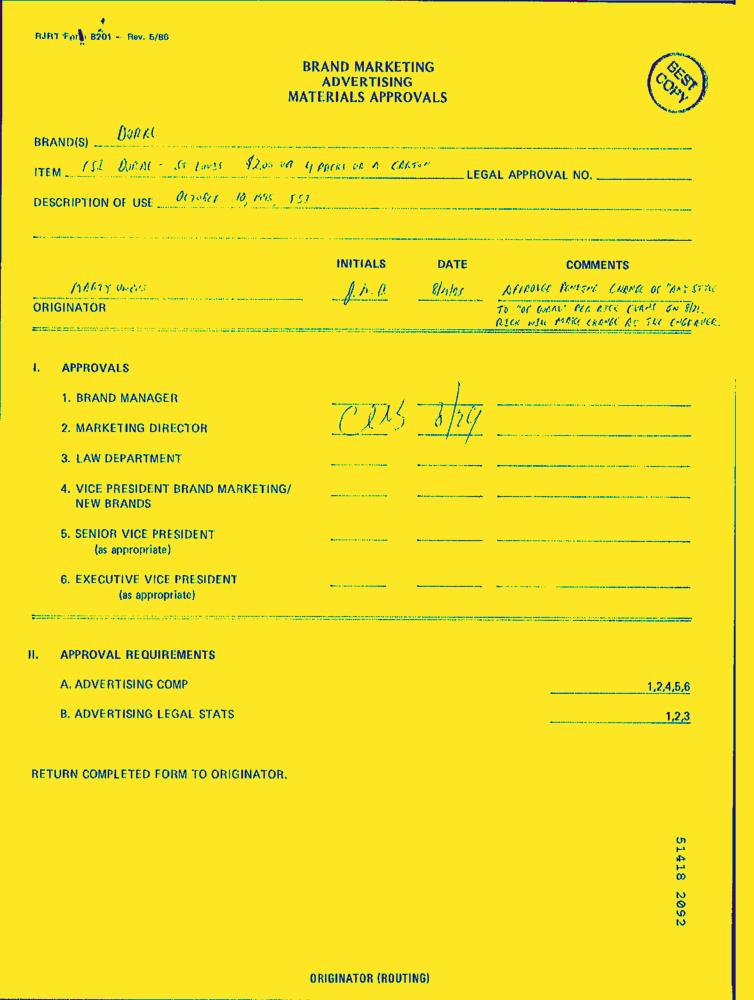 RJRT Form 8201 - Rev. 5/86
BRAND MARKETING
ADVERTISING
MATERIALS APPROVALS
BEST
COPY
BRAND(S) DORAL
ITEM FSI DORAL - St LOUIS $2.00 off 4 PACKS OR A CARTON
LEGAL APPROVAL NO.
DESCRIPTION OF USE OCTOBER 10, FSI
INITIALS DATE COMMENTS
MARTY
ORIGINATOR
APPROVAL PENDING CHANGE OF "ANY STYLE
TO "OF DORAL" PER RICK EVANS ON
RICK WILL MAKE CHANGE AT THE ENGRAVER.
I. APPROVALS
1. BRAND MANAGER
2. MARKETING DIRECTOR
8/29
3. LAW DEPARTMENT
4. VICE PRESIDENT BRAND MARKETING/
NEW BRANDS
5. SENIOR VICE PRESIDENT
(as appropriate)
6. EXECUTIVE VICE PRESIDENT
(as appropriate)
II. APPROVAL REQUIREMENTS
A. ADVERTISING COMP 1,2,4,5,6
B. ADVERTISING LEGAL STATS 1,2,3
RETURN COMPLETED FORM TO ORIGINATOR.
51418 2092
ORIGINATOR (ROUTING)